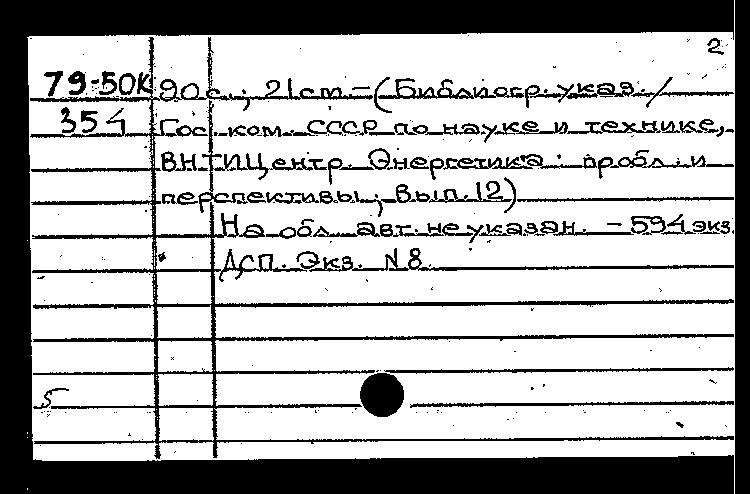 2
79-50К 90 с.; 21 см. – (Библиогр. указ. /
354 Гос. ком. СССР по науке и технике,
ВНТИЦентр. Энергетика: пробл. и
перспективы; Вып. 12)
На обл. авт. не указан. – 594 экз.
ДСП. Экз. N 8.
5